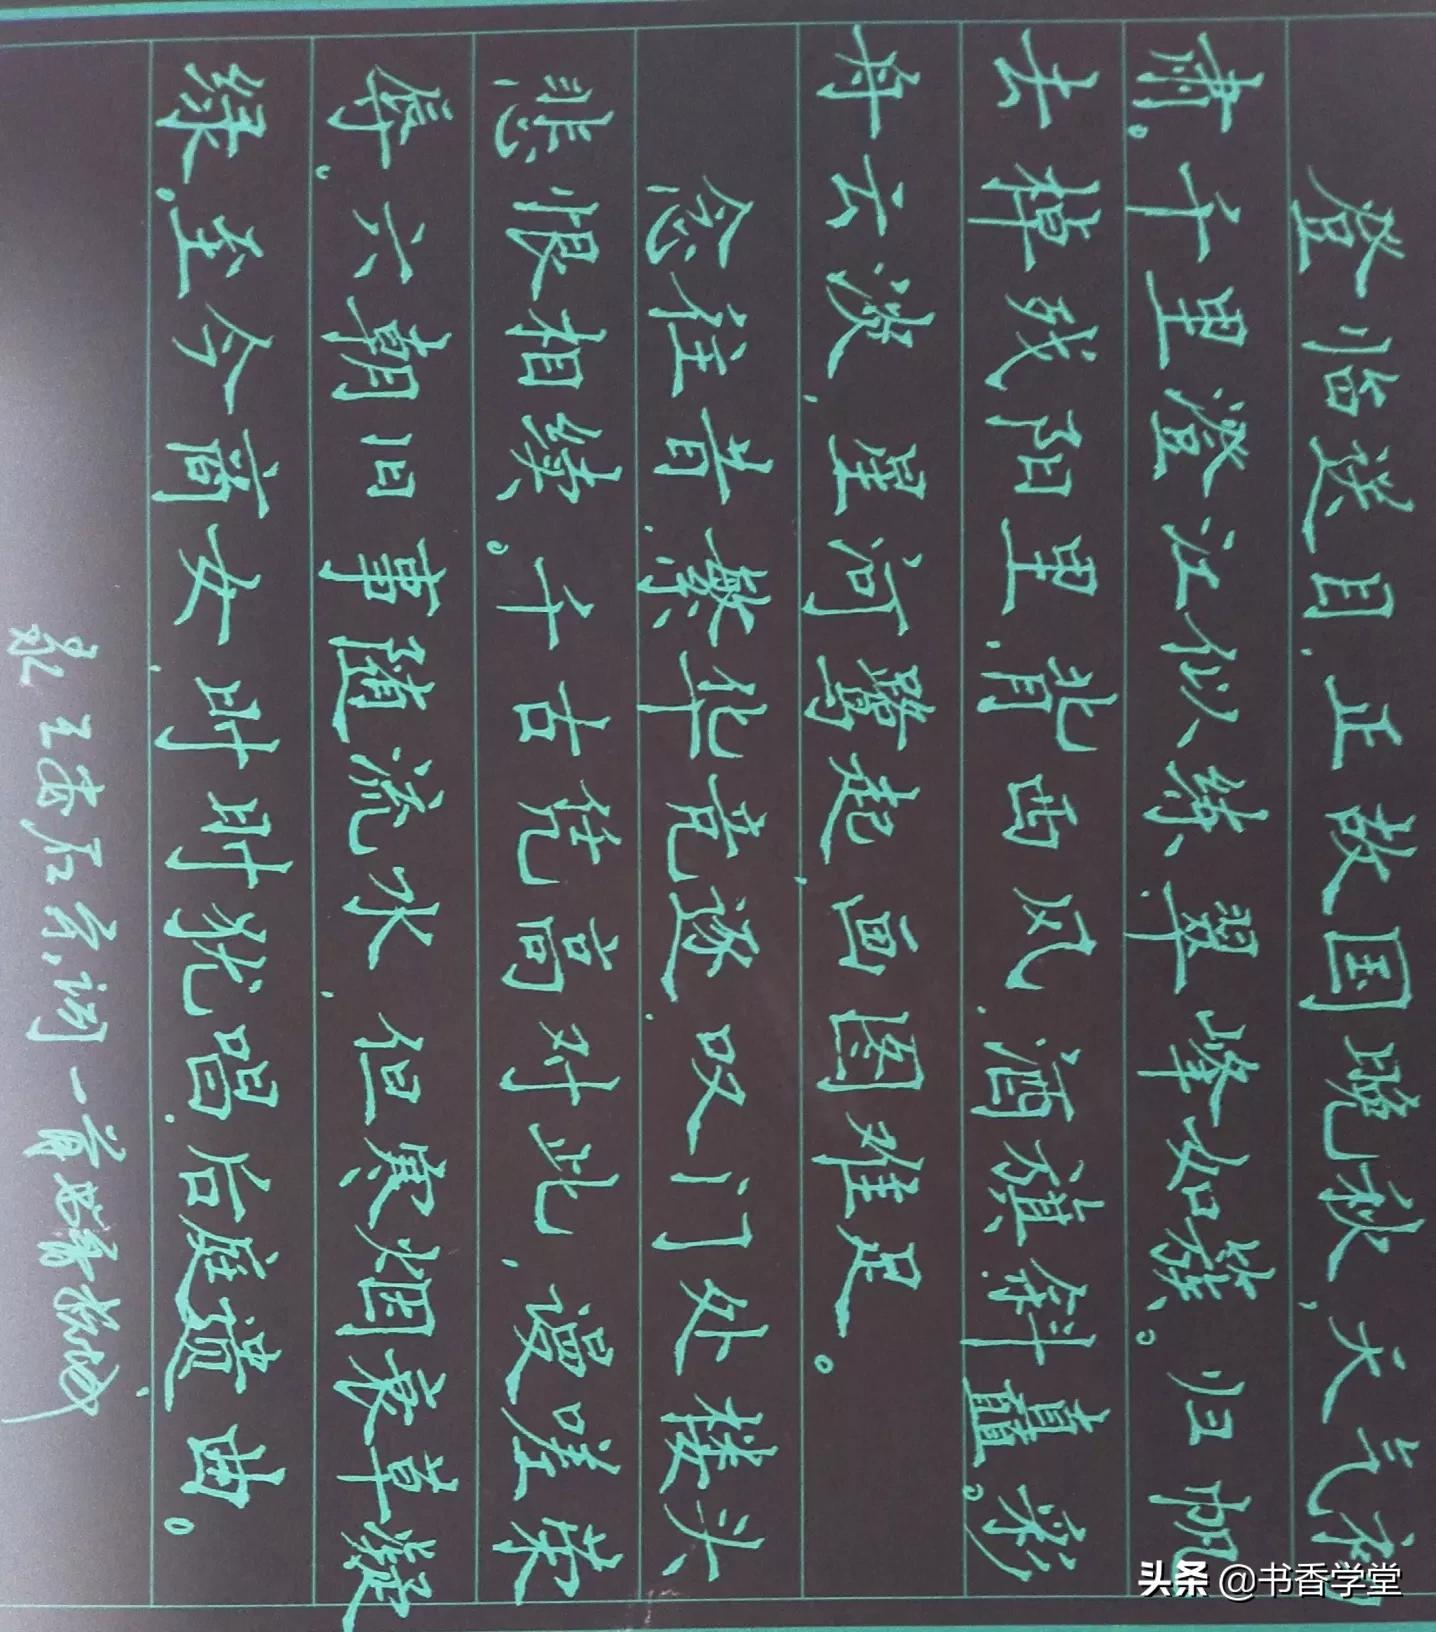 登临送目,正故国晚秋,天气初
肃。千里澄江似练,翠峰如簇。归帆
去棹残阳里,背西风,酒旗斜矗。彩
舟云淡,星河鹭起,画图难足。
念往昔,繁华竞逐,叹门处楼头
悲恨相续。千古凭高对此,漫嗟荣
辱。六朝旧事随流水,但寒烟衰草凝
绿。至今商女,时时犹唱,后庭遗曲。
录王安石宋词一首
头条 @书香学堂